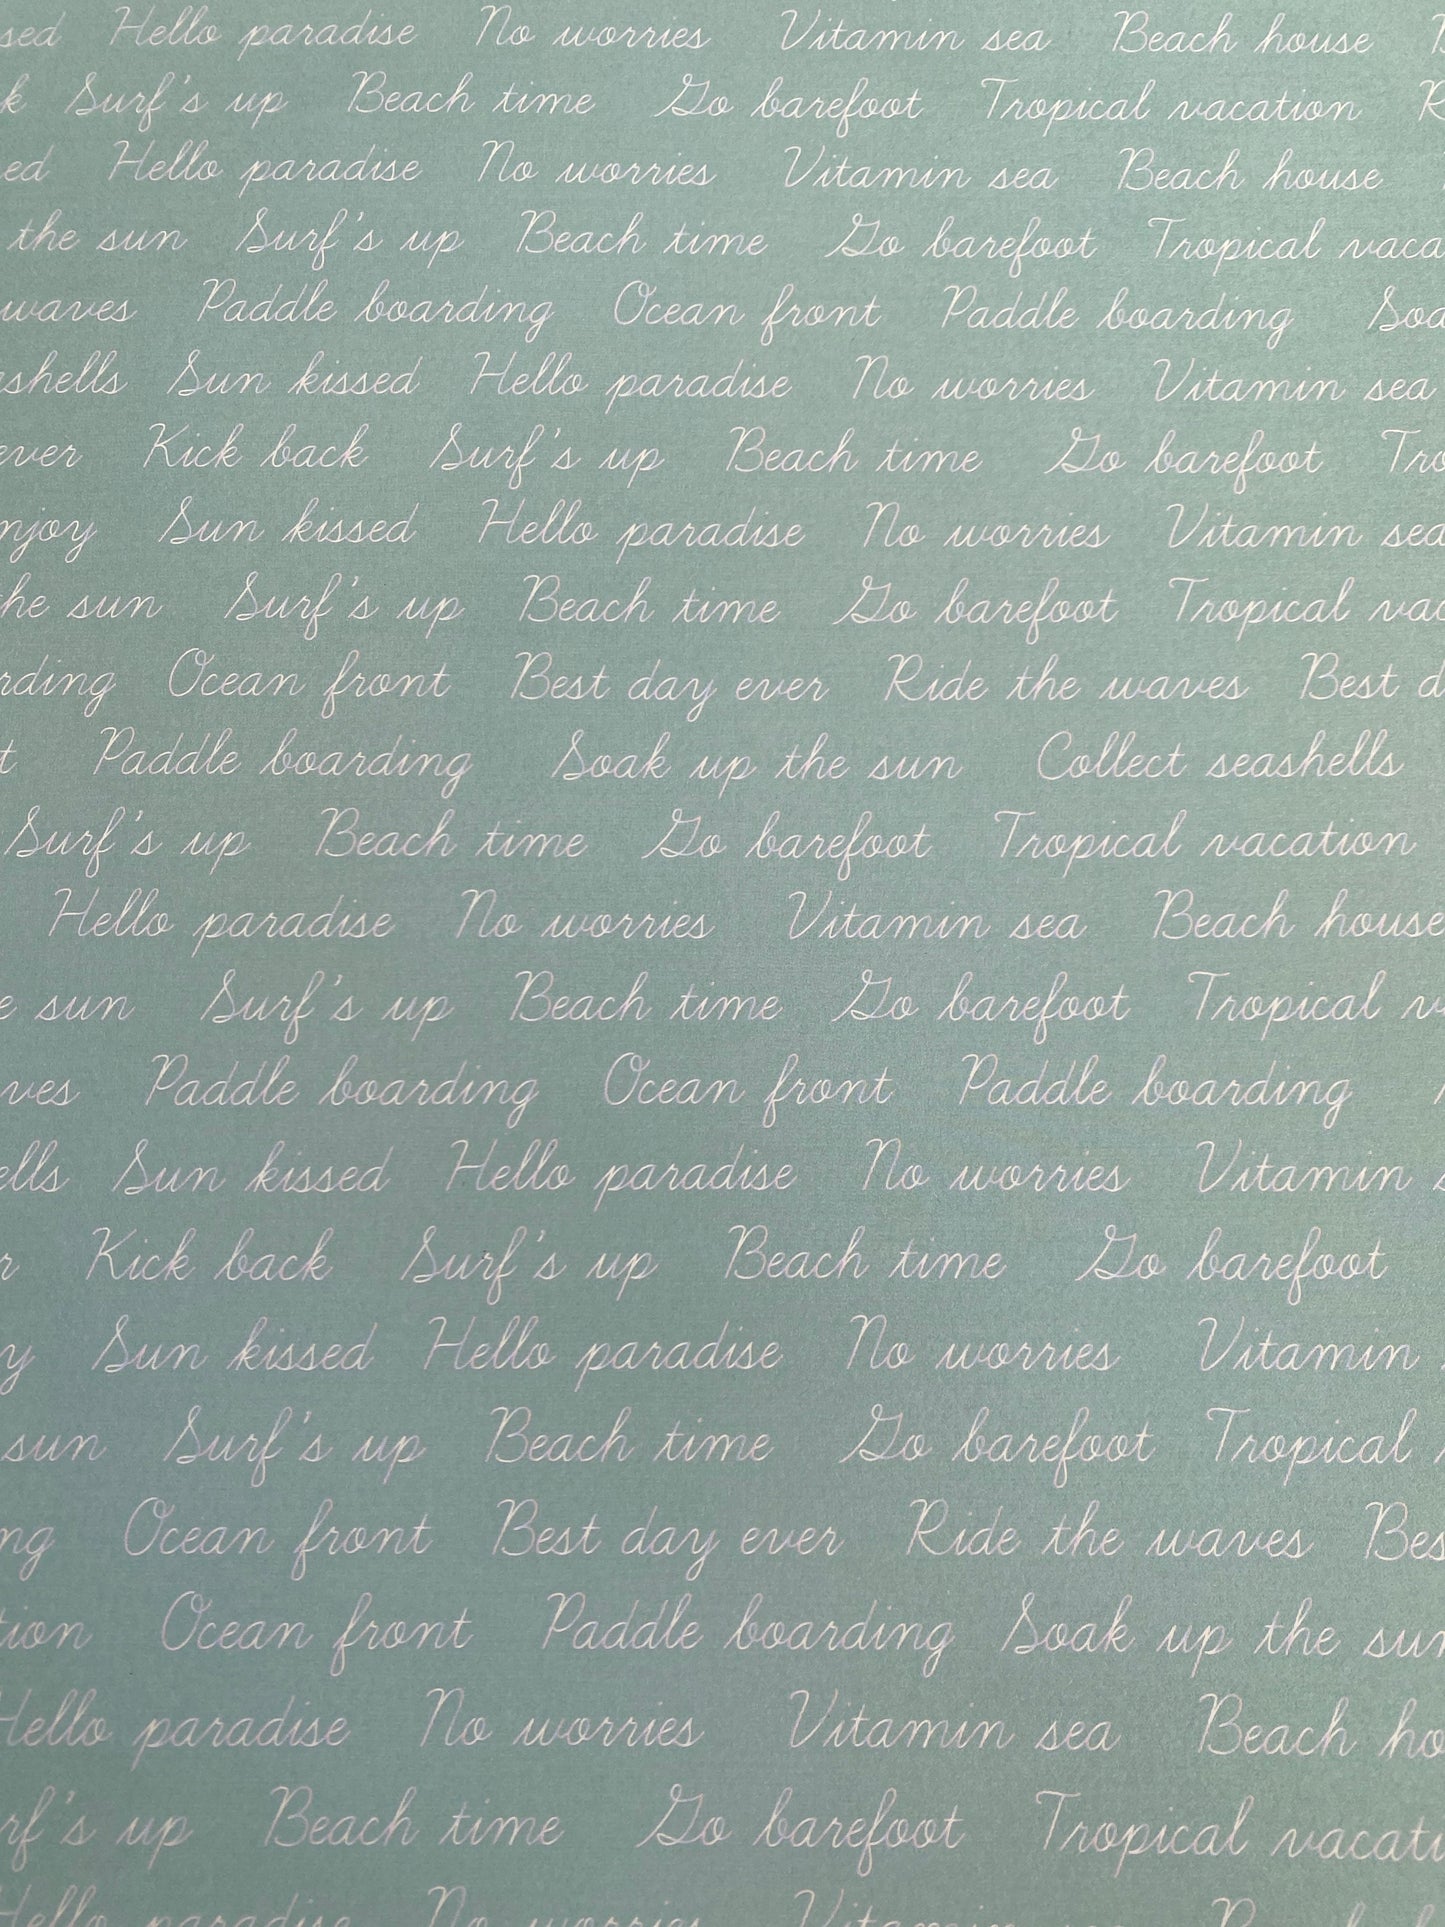 Hello paradise No worries Vitamin sea Beach house
Surf's up Beach time Go barefoot Tropical vacation
Hello paradise No worries Vitamin sea Beach house
the sun Surf's up Beach time Go barefoot Tropical vaca
waves Paddle boarding Ocean front Paddle boarding Soa
shells Sun kissed Hello paradise No worries Vitamin sea
ever Kick back Surf's up Beach time Go barefoot Tro
njoy Sun kissed Hello paradise No worries Vitamin sea
he sun Surf's up Beach time Go barefoot Tropical vac
rding Ocean front Best day ever Ride the waves Best d
t Paddle boarding Soak up the sun Collect seashells
Surf's up Beach time Go barefoot Tropical vacation
Hello paradise No worries Vitamin sea Beach house
e sun Surf's up Beach time Go barefoot Tropical v
ves Paddle boarding Ocean front Paddle boarding
ells Sun kissed Hello paradise No worries Vitamin
r Kick back Surf's up Beach time Go barefoot
y Sun kissed Hello paradise No worries Vitamin
sun Surf's up Beach time Go barefoot Tropical
ng Ocean front Best day ever Ride the waves Bes
tion Ocean front Paddle boarding Soak up the sun
Hello paradise No worries Vitamin sea Beach ho
rf's up Beach time Go barefoot Tropical vacati
Hello paradise No worries Vitamin sea